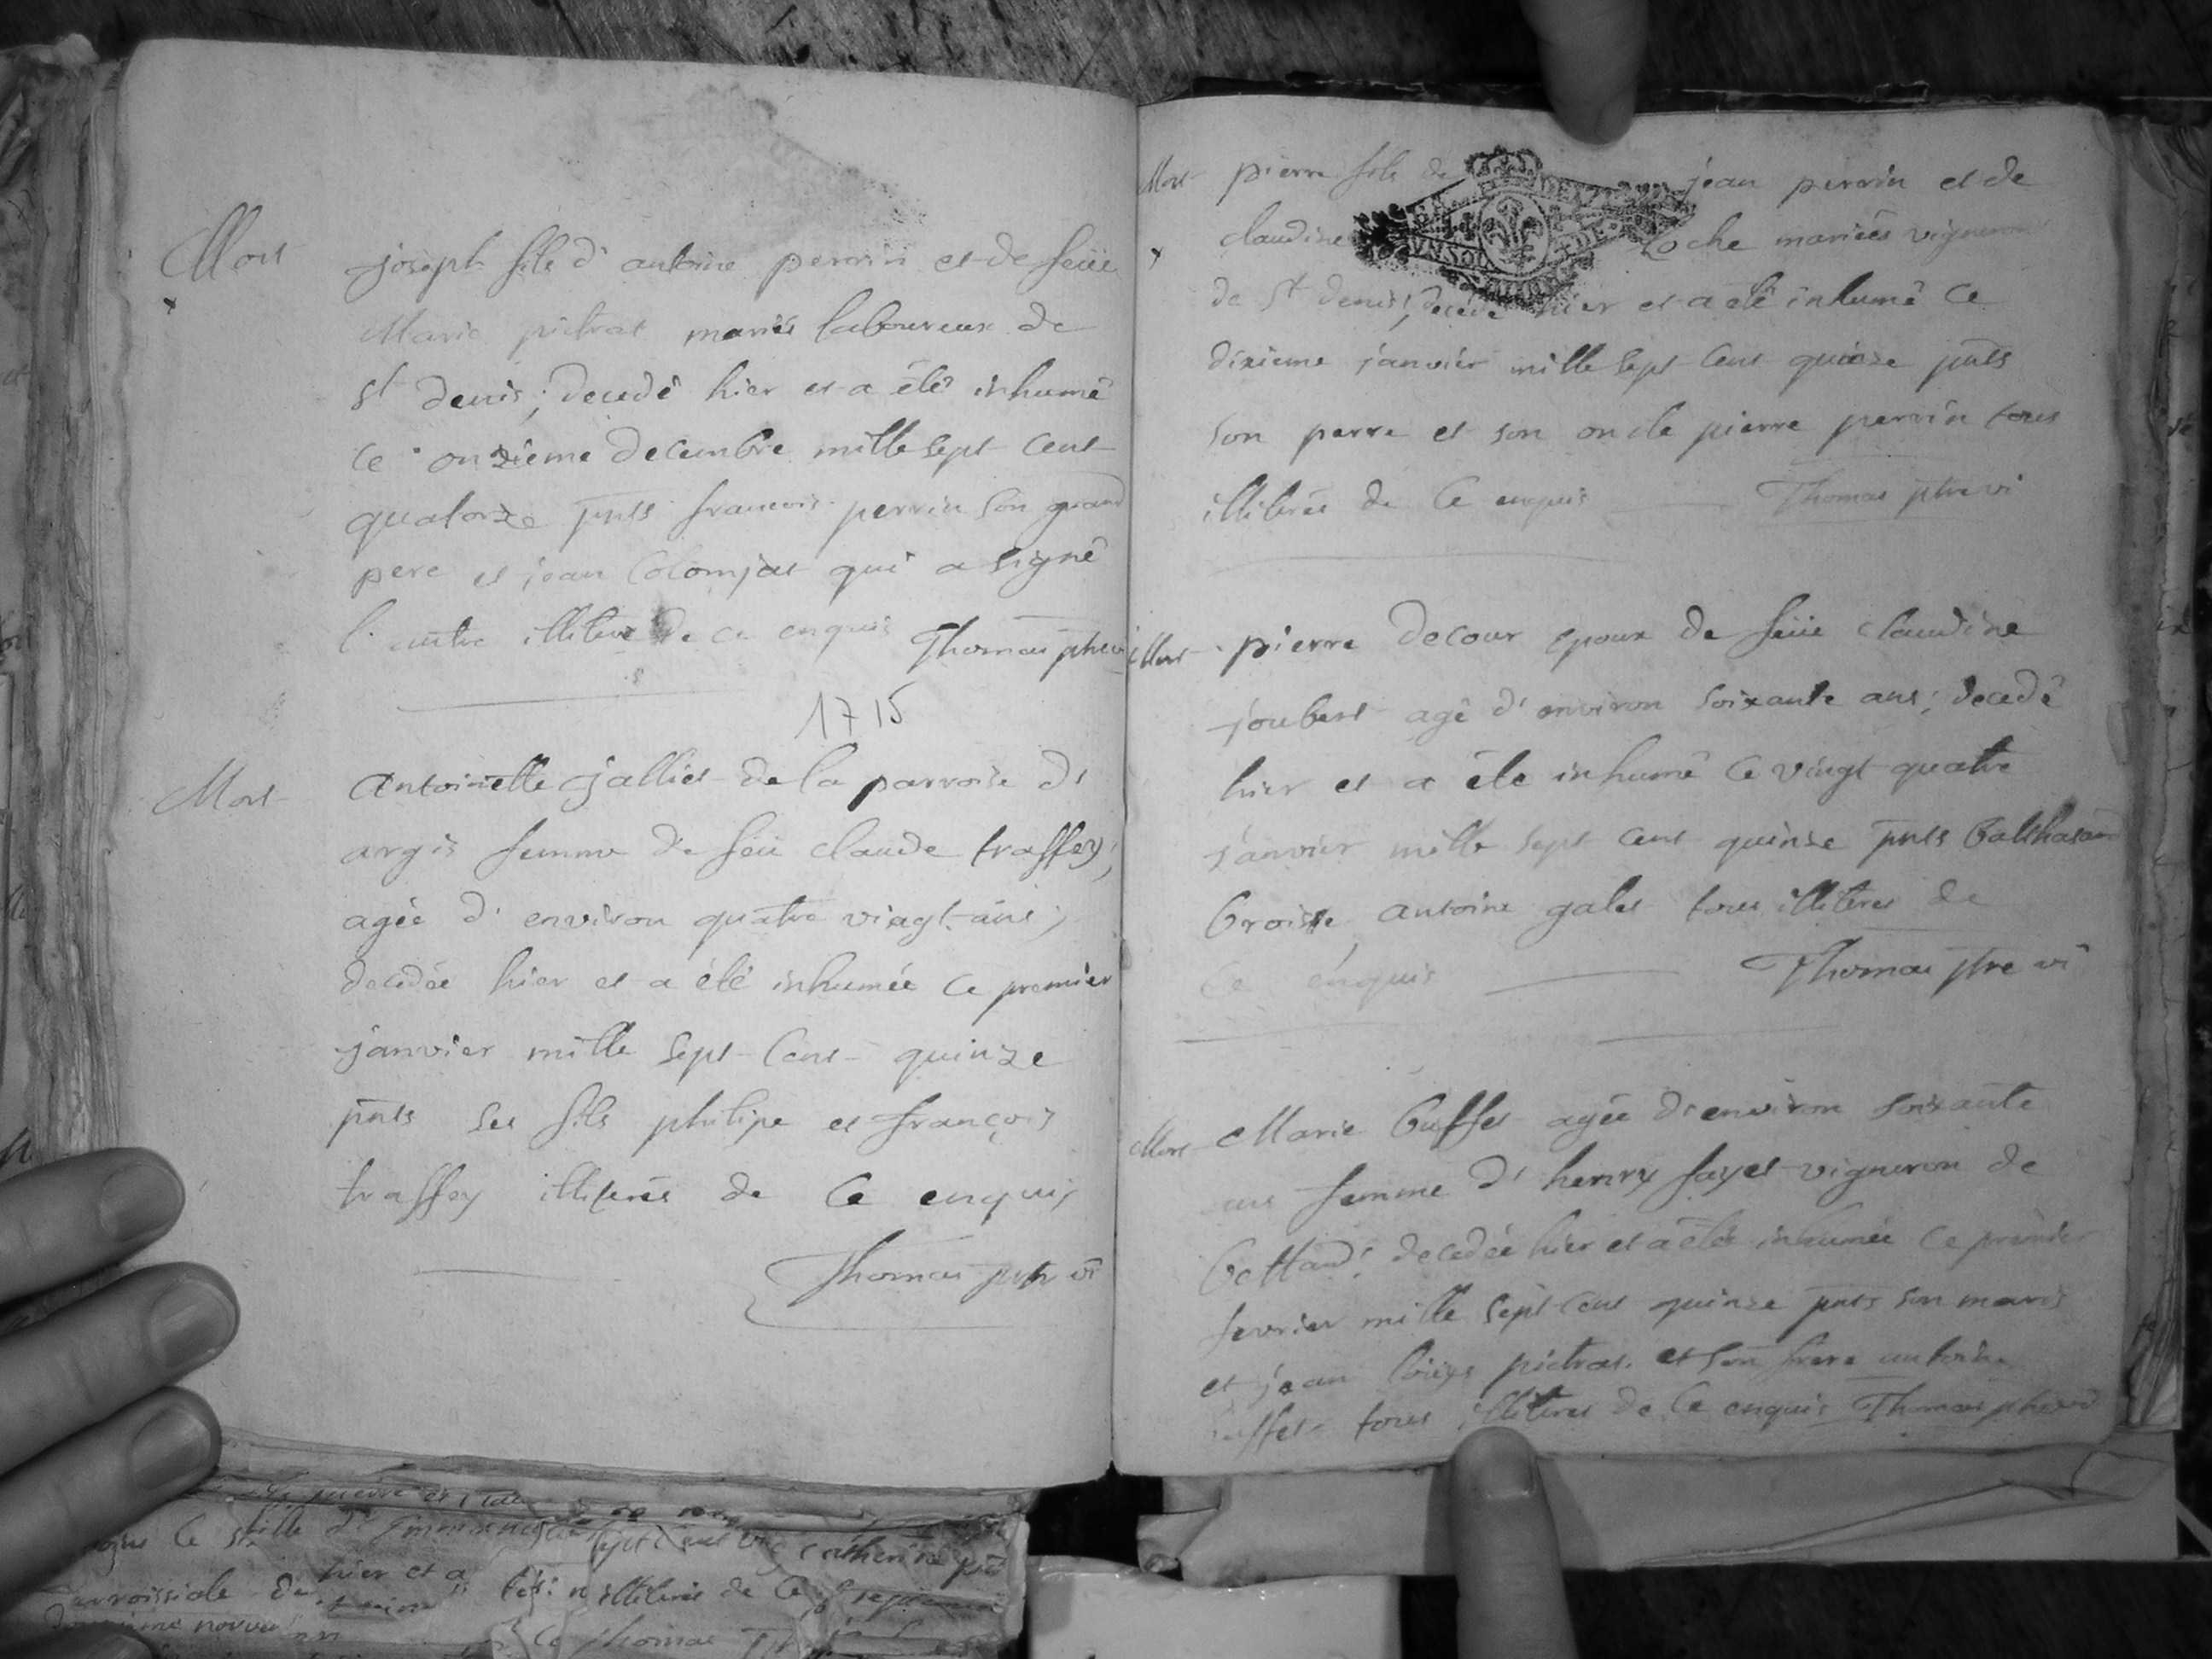 Mort
joseph fils d' antoine perrin et de feüe
Marie pietras mariés laboureux de
St denis; decedé hier et a été inhumé
ce onzieme decembre mille sept cent
quatorze pnts francois perrin son grand
pere et jean Colomjat qui a signé
l'autre illiteré de ce enquis Thomas ptre vi
1715
Mort
Antoinette jalliet de la parroise d'
argis femme de feü claude traffey,
agée d' environ quatre vingt ans;
decedée hier et a été inhumée ce premier
janvier mille sept cent quinze
pnts ses fils philipe et françois
traffey illiterés de ce enquis
Thomas ptre vi
Mort pierre fils de jean perrin et de
claudine Loche mariées vigneron
de St denis; decedé hier et a été inhumé ce
dixieme janvier mille sept cent quinze pnts
son perre et son oncle pierre perrin tous
illiterés de ce enquis Thomas ptre vi
Mort pierre decour epoux de feüe claudine
joubert agé d' environ soixante ans; decedé
hier et a été inhumé ce vingt quatre
janvier mille sept cent quinze pnts balthasard
broisse antoine galet tous illiteres de
ce enquis Thomas ptre vi
Mort Marie buffet agée d'environ soixante
ans femme d' henry fayet vigneron de
bettand; decedée hier et a été inhumée ce premier
fevrier mille sept cent quinze pnts son maris
et jean pietras et son frere antoine
buffet tous illiteres de ce enquis Thomas ptre vi
hier et a
illiterés de ce
parroissiale
Thomas